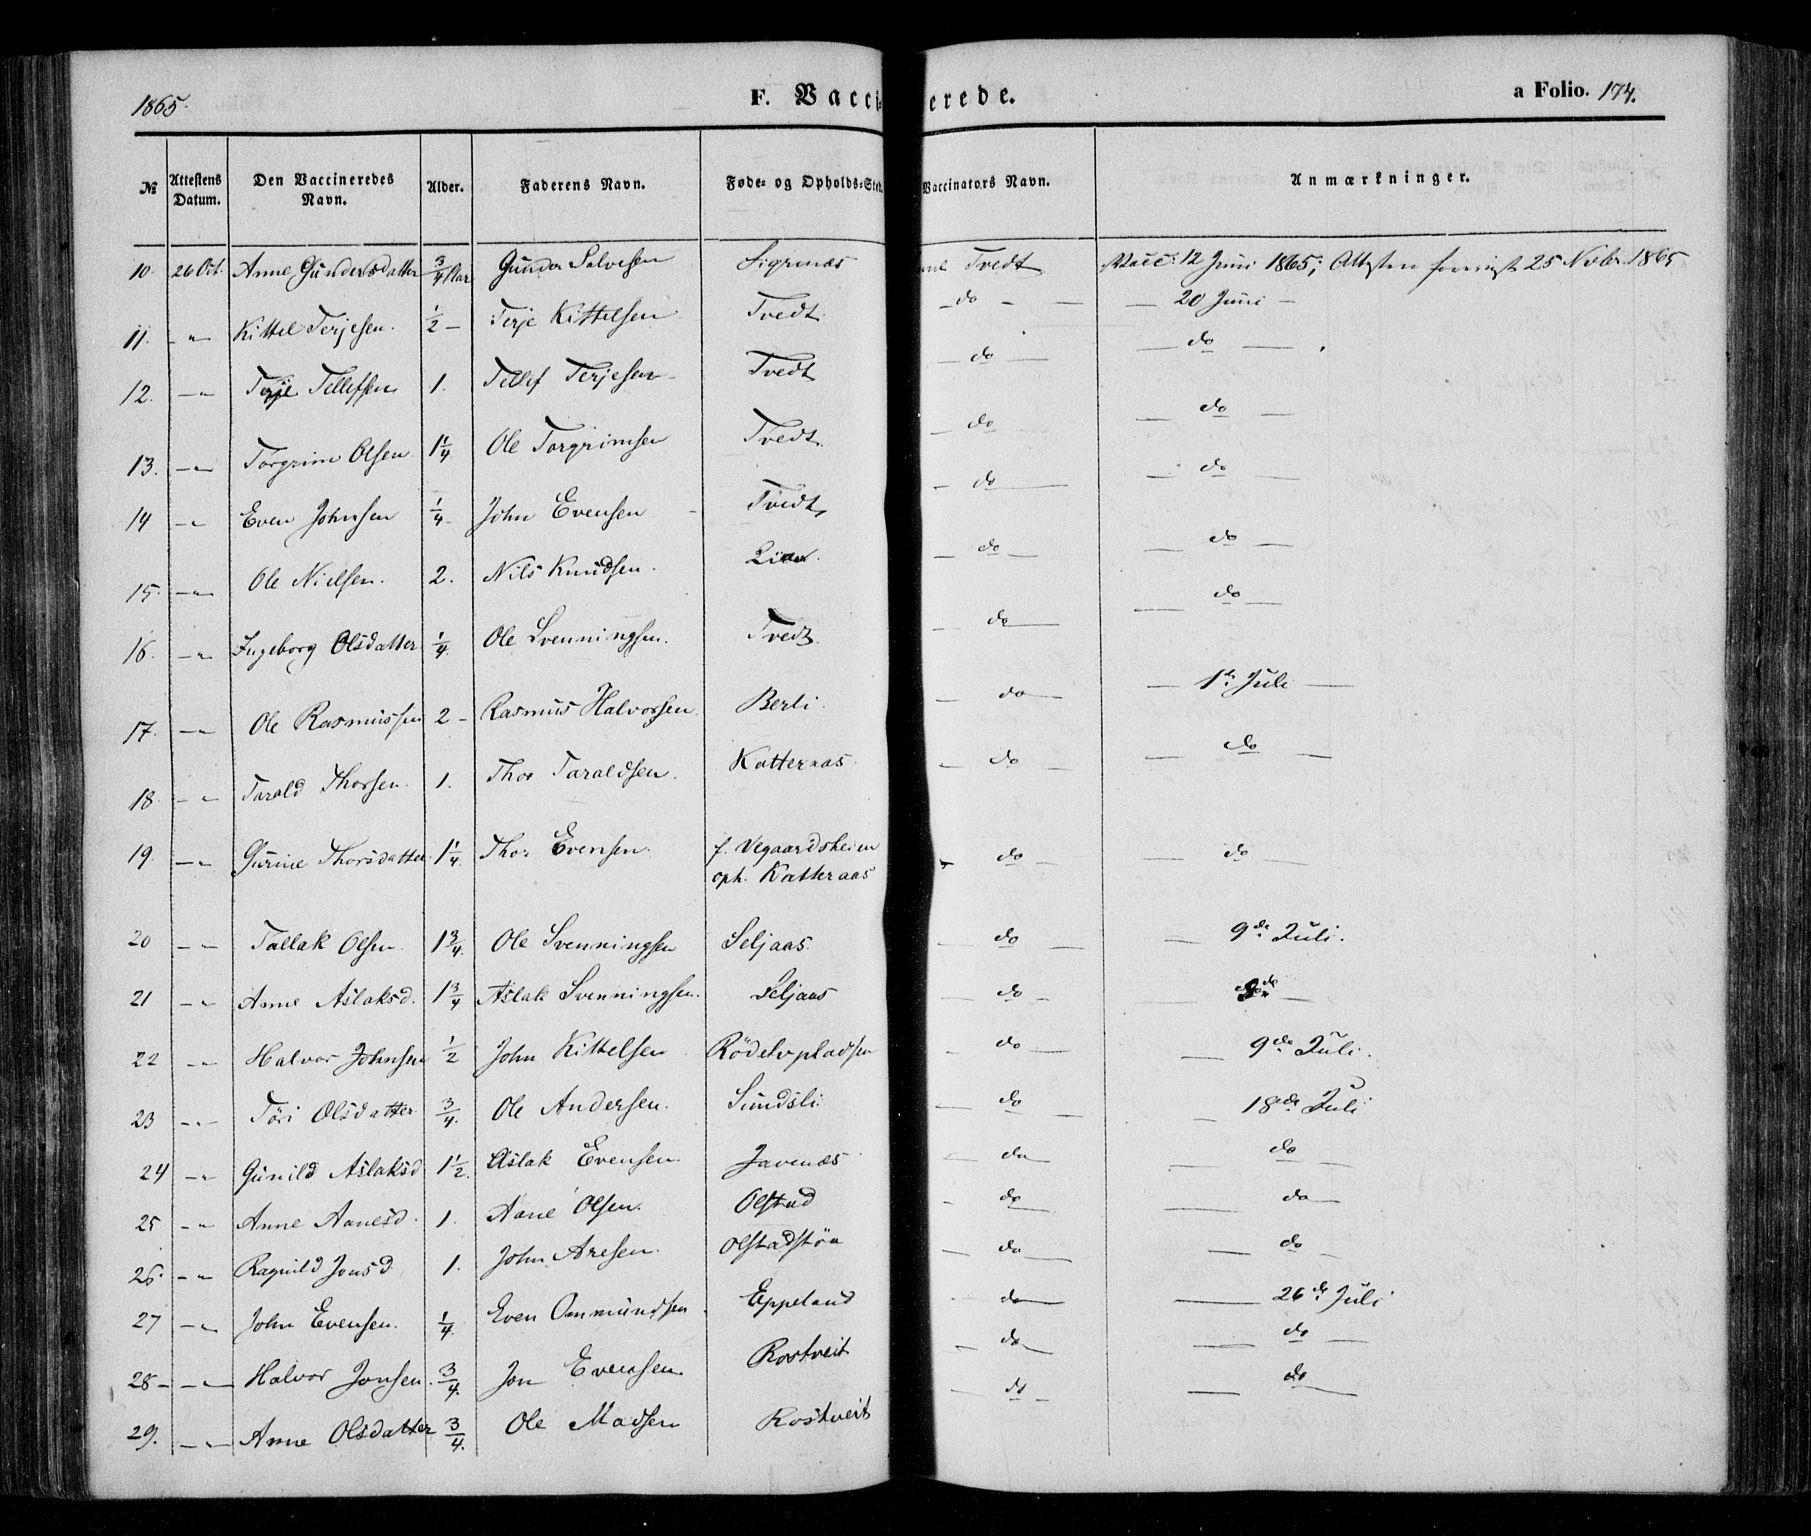 1865.
F. Vacci- erede.
a Folio. 174.
№ | Attestens Datum. | Den Vaccineredes Navn. | Alder. | Faderens Navn. | Føde- og Opholds-Sted. | Vaccinators Navn. | Anmærkninger.
10. | 26 Oct. | Anne Gundersdatter | 3/4 Aar | Gunder Salvesen | Sigrenæs | Tvedt | Vacc: 12 Juni 1865; Attesten 25 Novbr 1865
11. | - " | Kittel Terjesen. | 1/2 - | Terje Kittelsen | Tvedt. | - do - | - 20 Juni -
12. | - " | Terje Tellefsen | 1. | Tellef Terjesen | Tvedt | - do - | - do -
13. | - " | Torgrim Olsen | 1 1/4 | Ole Torgrimsen | Tvedt. | - do - | - do -
14 | - " | Even Johnsen | 1/4 - | John Evensen - | Tvedt, | - do - | - do -
15. | - " | Ole Nielsen. | 2. | Nils Knudsen. | Lien. | - do - | - do -
16. | - " | Ingeborg Olsdatter | 1/4. | Ole Svenningsen. | Tvedt. | - do - | - do -
17. | - " | Ole Rasmussen | 2 - | Rasmus Halvorsen. | Berli. | - do - | - 1ste Juli -
18. | - " | Tarald Thorsen. | 1. | Thor Taraldsen. | Katteraas. | - do - | - do -
19. | - " | Gurine Thorsdatter. | 1 1/4. | Thor Evensen. | f. Vegaardsheien
oph. Katteraas | - do - | - do -
20 | - " | Tallak Olsen. | 1 3/4. | Ole Svenningsen | Seljaas. | - do - | - 9de Juli.
21 | - " | Anne Aslaksd. | 1 3/4 | Aslak Svenningsen. | Seljaas | - do - | do -
22 | - " | Halvor Johnsen | 1/2 | John Kittelsen | Rödelvpladsen | - do - | - 9de Juli.
23 | - " | Töri Olsdatter | 3/4. | Ole Andersen. | Sundsli | - do - | - 18de Juli
24 | - " | Gunild Aslaksd | 1 1/2. | Aslak Evensen. | Javenæs | - do - | - do -
25 | - " | Anne Aanesd. | 1. | Aane Olsen. | Olstad | - do - | - do -
26. | - " | Ragnild Jonsd. | 1. | John Aresen. | Olstadstöa | - do - | - do -
27 | - " | John Evensen. | 1/4. | Even Ommundsen. | Eppeland | - do - | - 26de Juli
28 - | - " - | Halvor Jonsen. | 3/4. | Jon Evensen. | Rostveit | - do - | - do -
29. | - " - | Anne Olsdatter | 3/4. | Ole Madsen | Rostveit | - do - | - do -